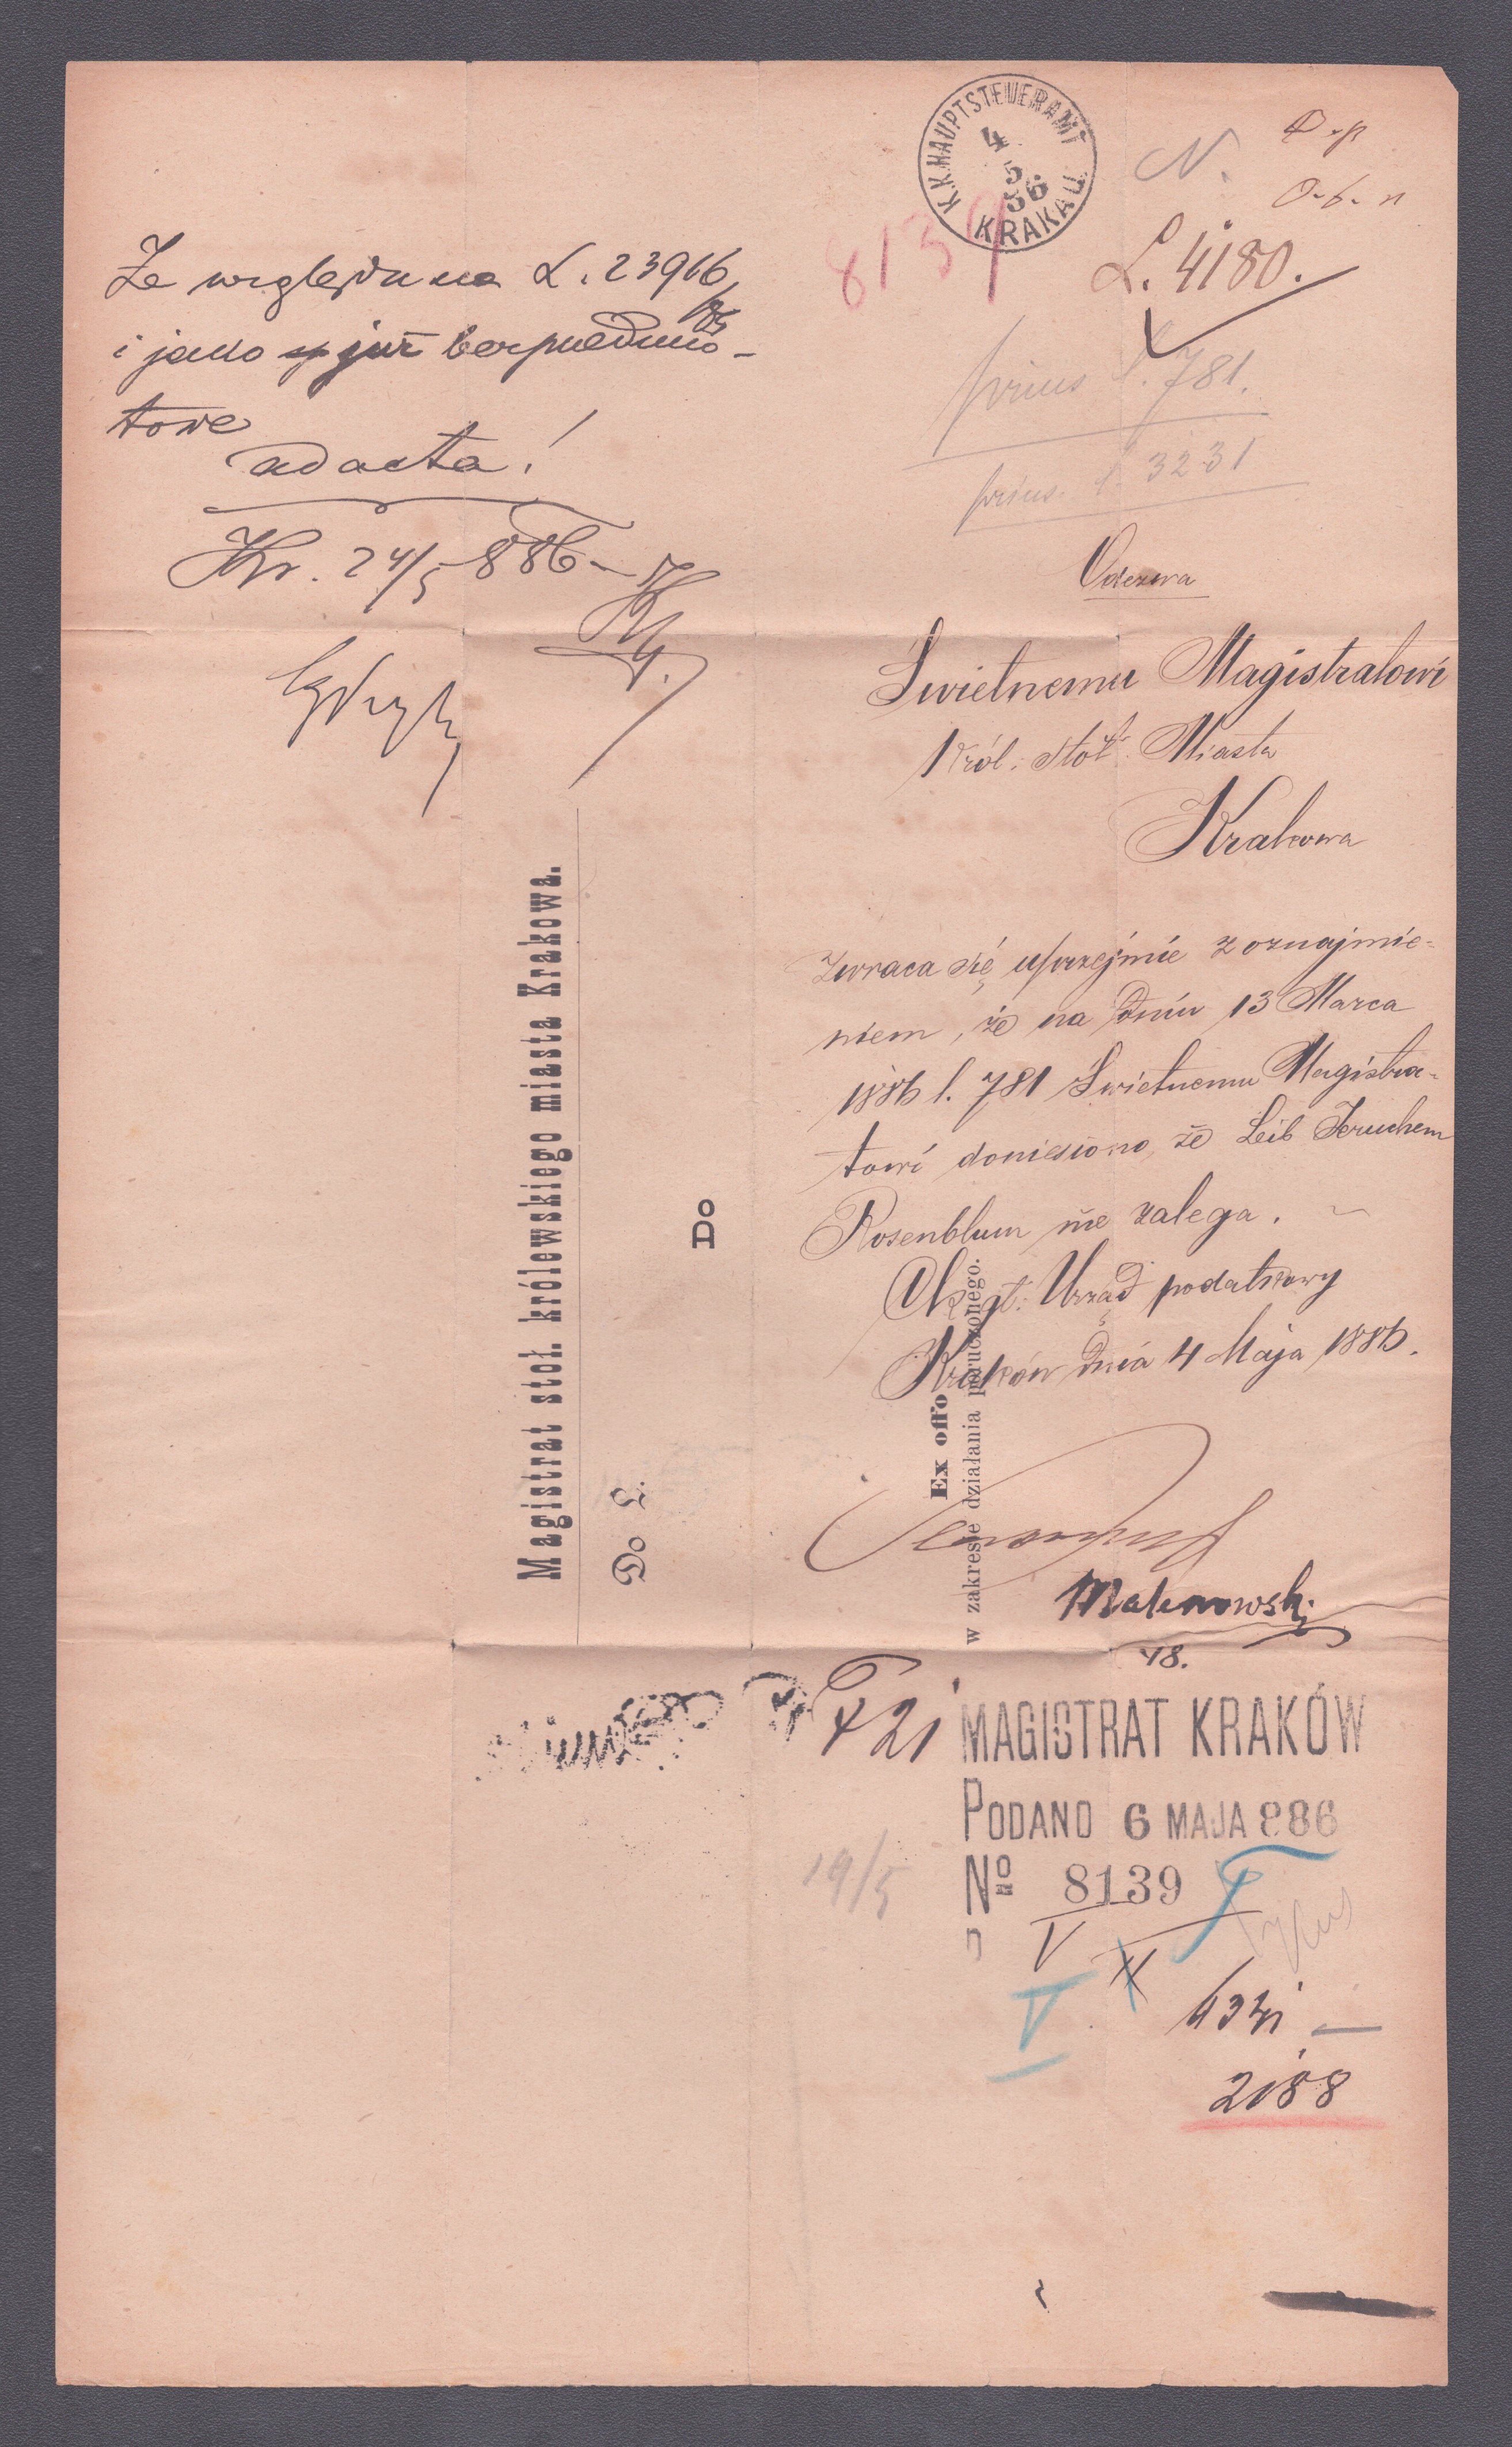 Ze względu na L. 23916/85
i jako już bezprzedmio-
towe
ad acta!
Kr. 24/5 886
K.K. HAUPTSTEUERAMT KRAKAU
4 5 86
8139
N.
L. 4180.
prius l. 781.
prius l. 3231
Odezwa
Świetnemu Magistratowi
Król. stoł. Miasta
Krakowa
zwraca się uprzejmie z oznajmie-
niem, że na dniu 13 Marca
1886 l. 781 Świetnemu Magistra-
towi doniesiono, że Leib Jeruchem
Rosenblum nie zalega.
Urząd podatkowy
Kraków dnia 4 Maja 1886.
Malinowski
Magistrat stoł. królewskiego miasta Krakowa.
Do L.
Do
Ex offo
w zakresie działania poruczonego.
MAGISTRAT KRAKÓW
PODANO 6 MAJA 886
No 8139
V
19/5
V
2188